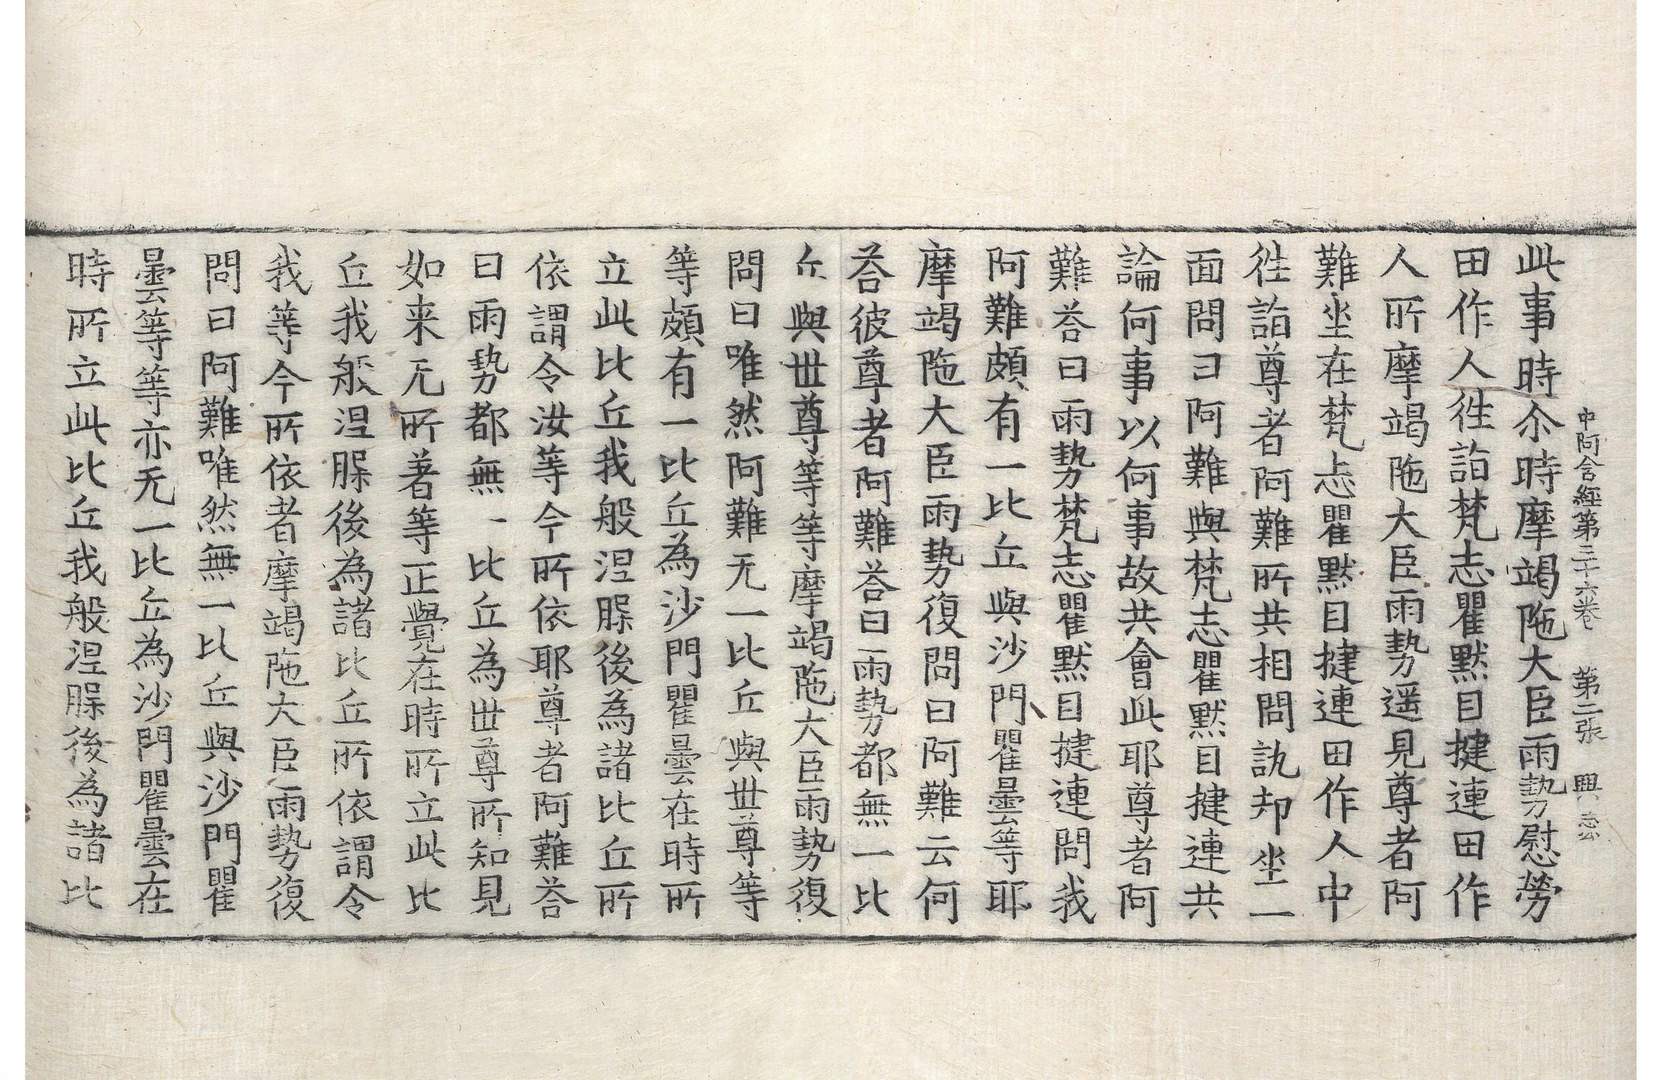 中阿含經第三十六卷 第二張 興 忘
此事時尒時摩竭陁大臣雨勢慰勞
田作人徃詣梵志瞿默目揵連田作
人所摩竭陁大臣雨勢遥見尊者阿
難坐在梵志瞿默目揵連田作人中
徃詣尊者阿難所共相問訊却坐一
面問曰阿難與梵志瞿默目揵連共
論何事以何事故共會此耶尊者阿
難荅曰雨勢梵志瞿默目揵連問我
阿難頗有一比丘與沙門瞿曇等耶
摩竭陁大臣雨勢復問曰阿難云何
荅彼尊者阿難荅曰雨勢都無一比
丘與世尊等等摩竭陁大臣雨勢復
問曰唯然阿難无一比丘與世尊等
等頗有一比丘為沙門瞿曇在時所
立此比丘我般涅腂後為諸比丘所
依謂令汝等今所依耶尊者阿難荅
曰雨勢都無一比丘為世尊所知見
如来无所著等正覺在時所立此比
丘我般涅腂後為諸比丘所依謂令
我等今所依者摩竭陁大臣雨勢復
問曰阿難唯然無一比丘與沙門瞿
曇等等亦无一比丘為沙門瞿曇在
時所立此比丘我般涅腂後為諸比